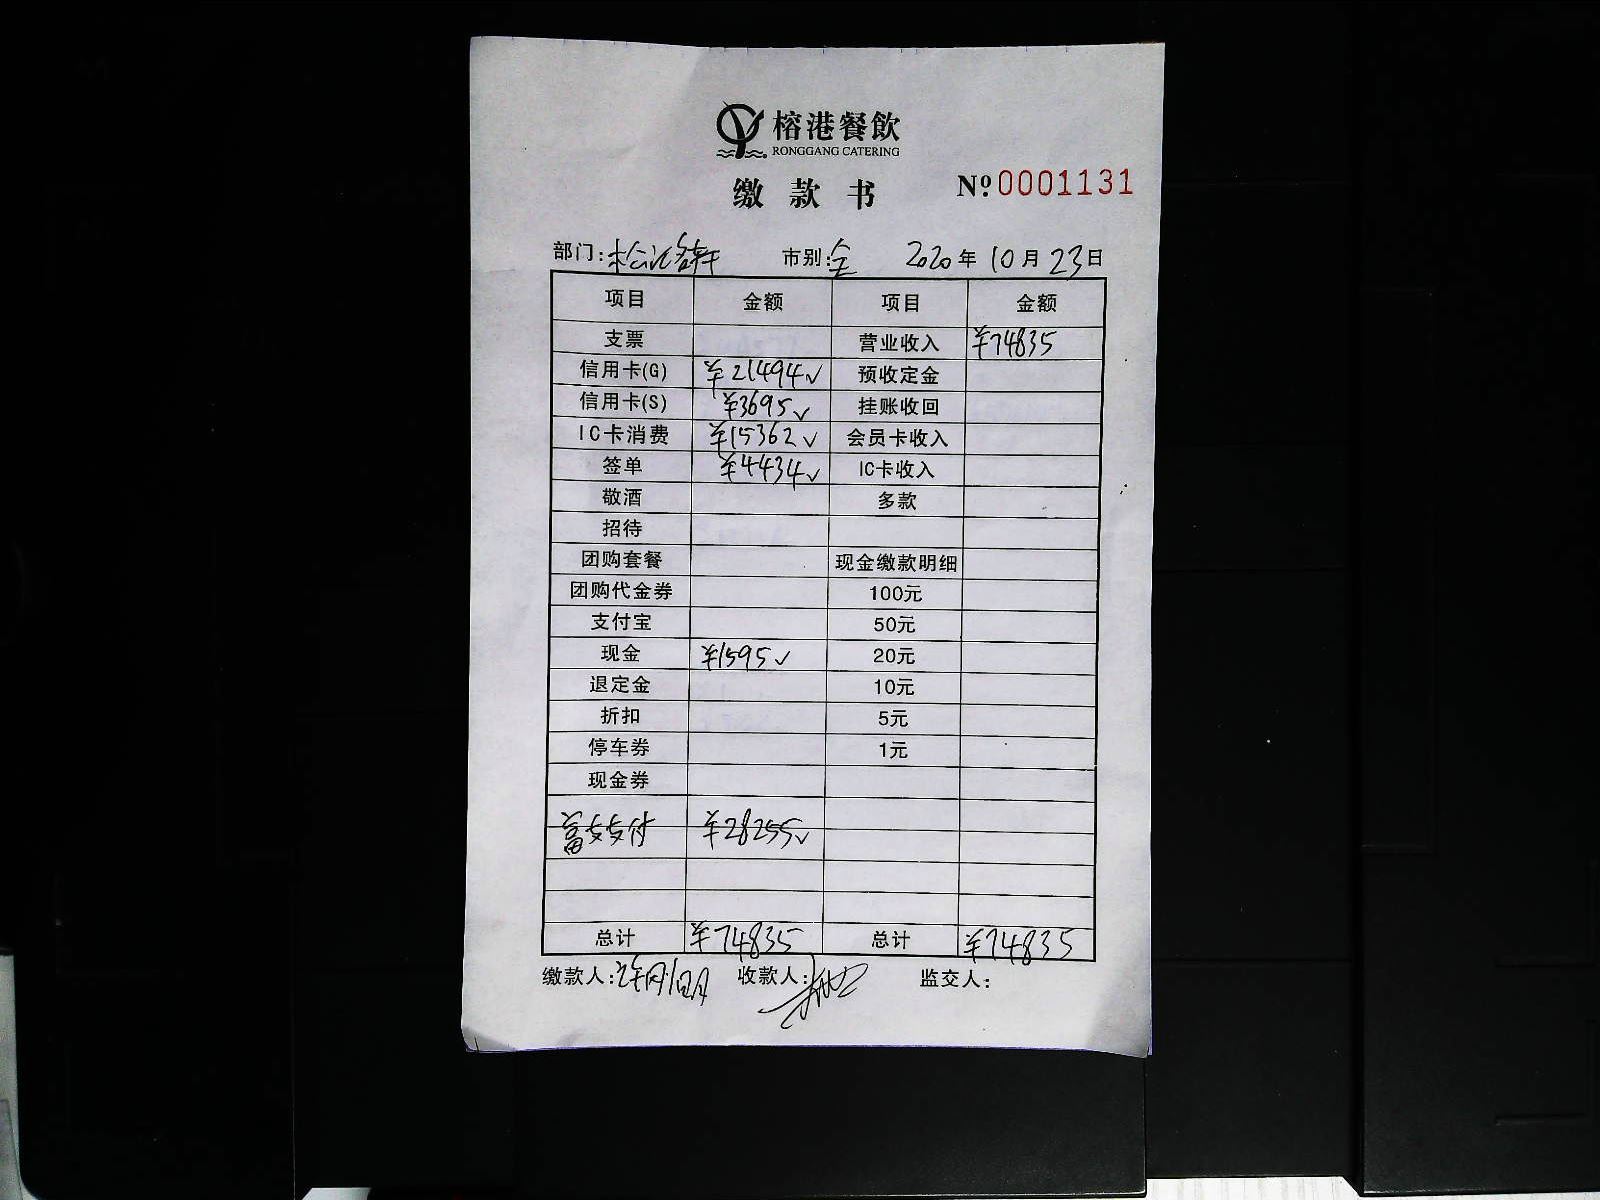 榕港餐飲
RONGGANG CATERING
缴款书 №0001131
部门: 市别:全 2020年10月23日
项目 金额 项目 金额
支票 营业收入 ¥74835
信用卡(G) ¥21494✓ 预收定金
信用卡(S) ¥3695✓ 挂账收回
IC卡消费 ¥15362✓ 会员卡收入
签单 ¥4434✓ IC卡收入
敬酒 多款
招待
团购套餐 现金缴款明细
团购代金券 100元
支付宝 50元
现金 ¥1595✓ 20元
退定金 10元
折扣 5元
停车券 1元
现金券
¥28255✓
总计 ¥74835 总计 ¥74835
缴款人: 收款人: 监交人: